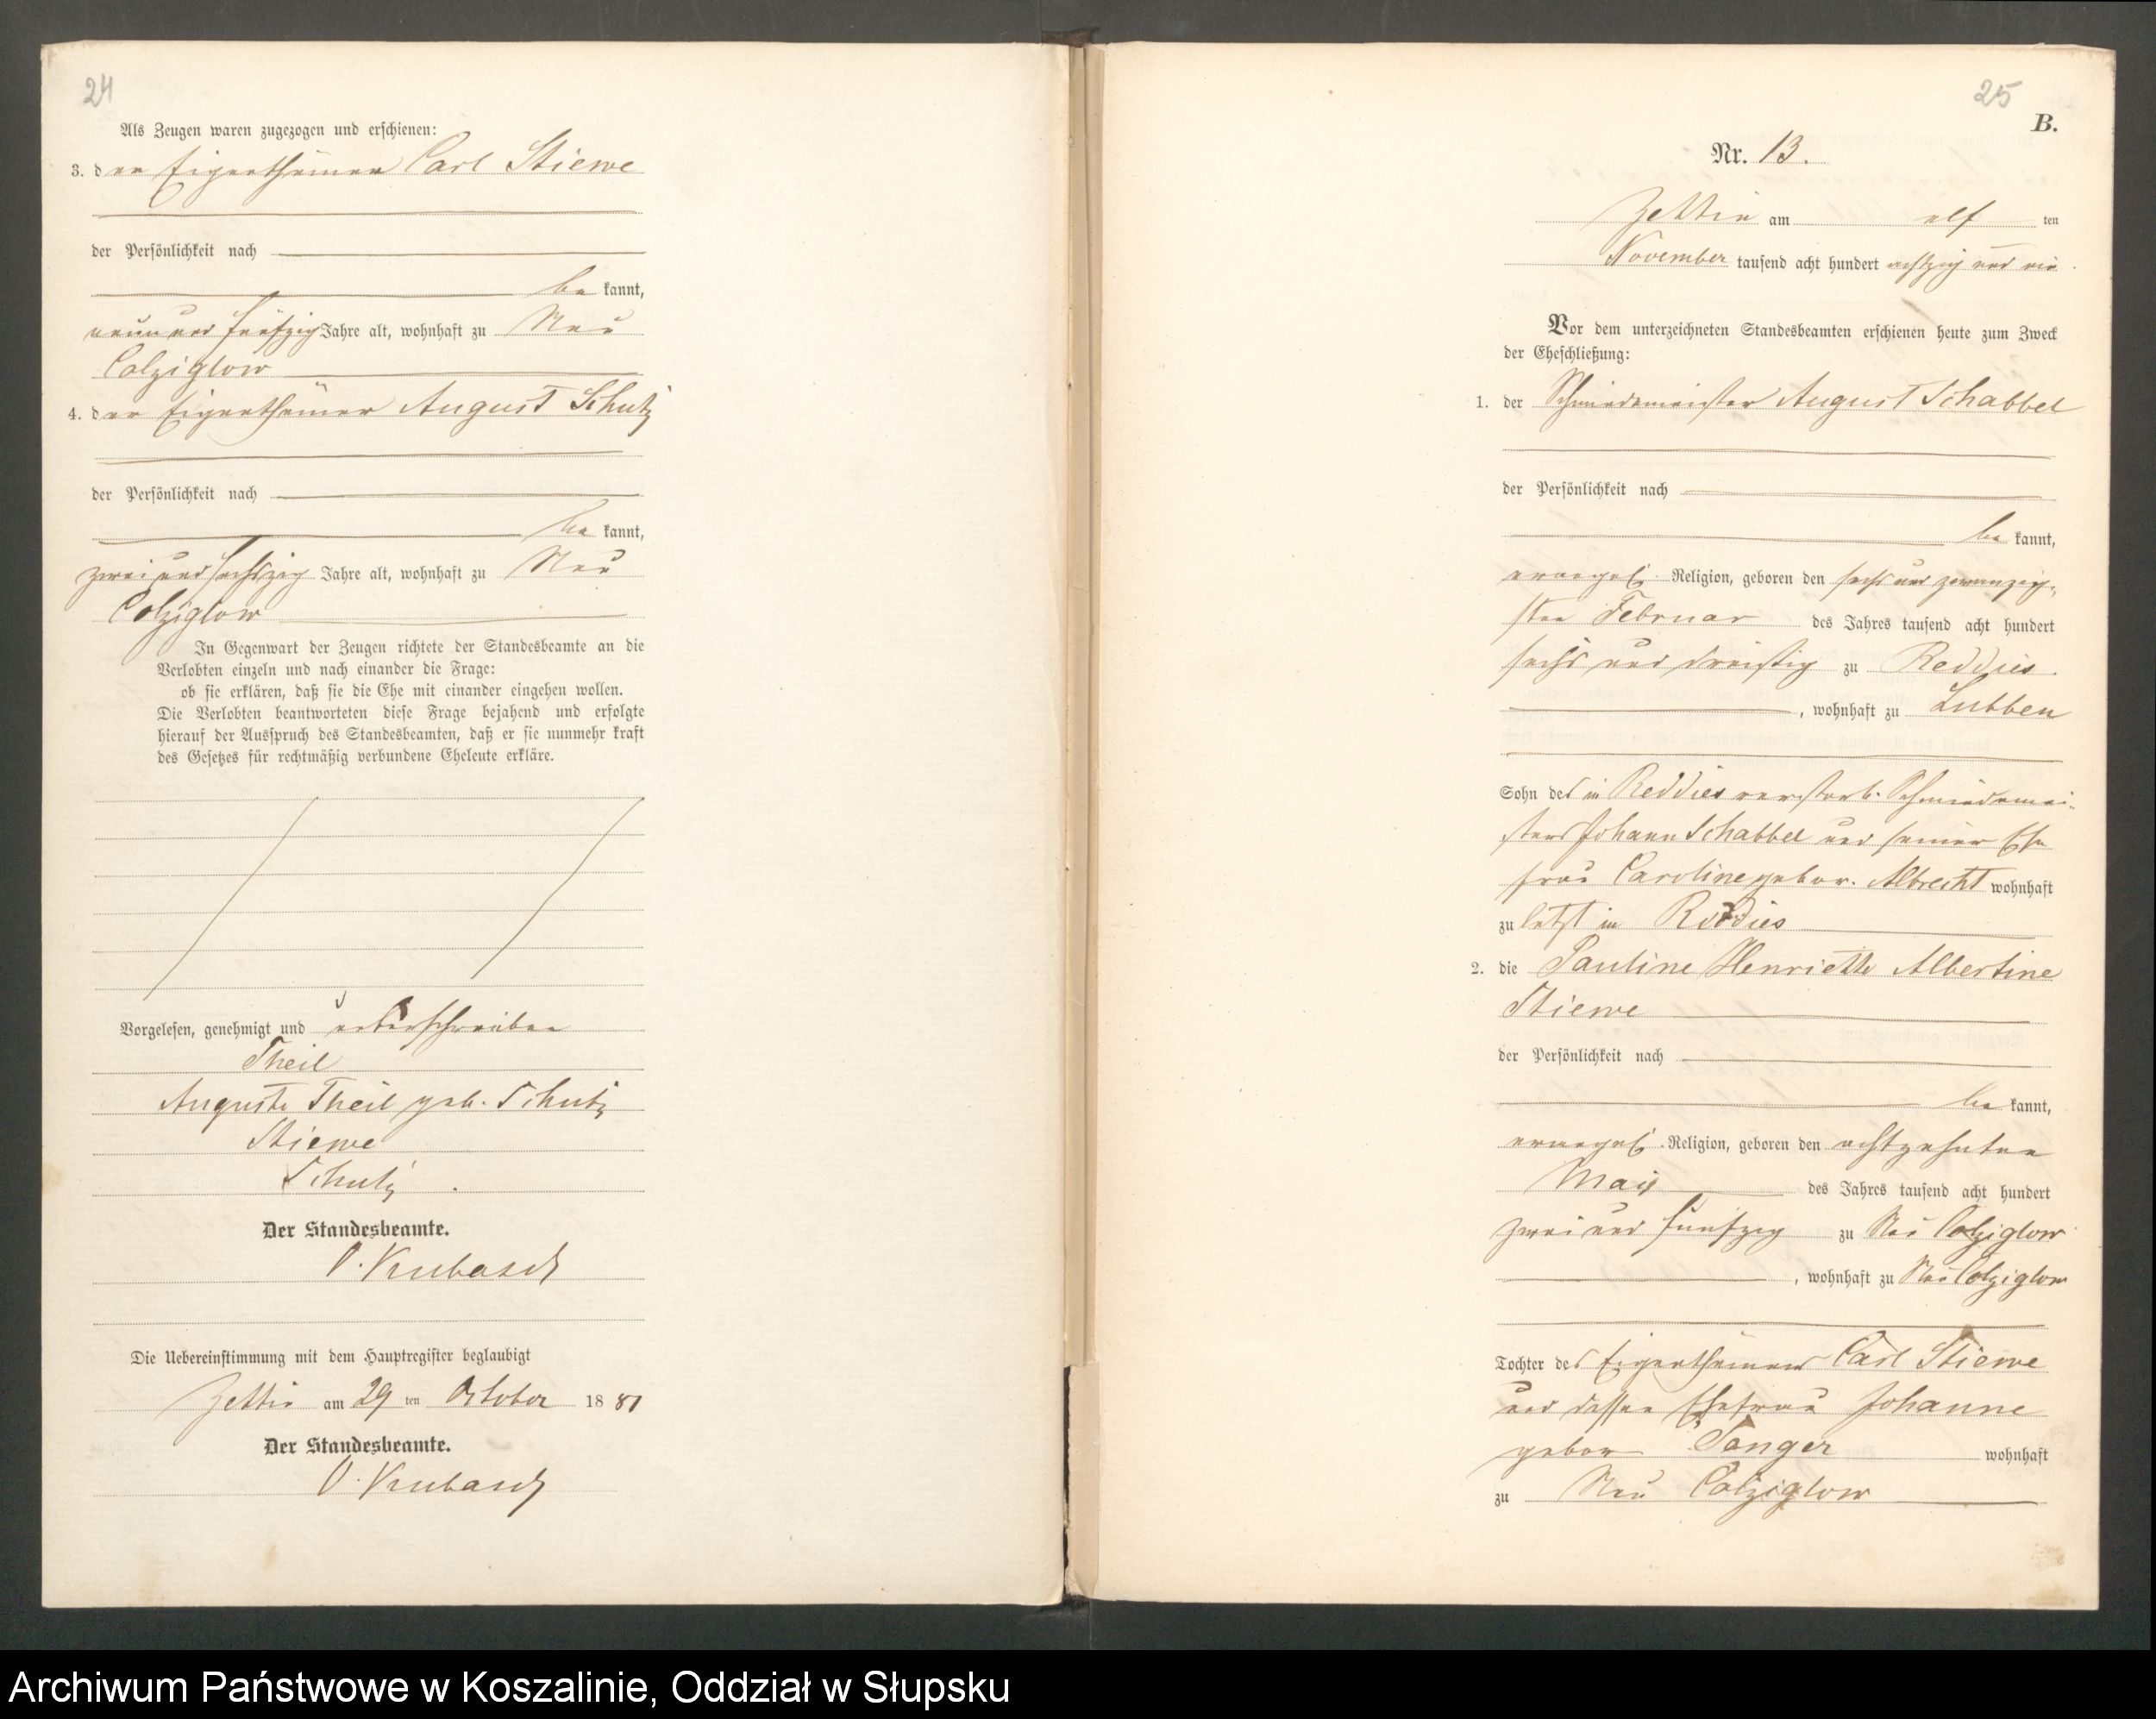 24
Als Zeugen waren zugezogen und erschienen:
3. der Eigenthümer Carl Stiewe
der Persönlichkeit nach
be kannt,
neun und fünfzig Jahre alt, wohnhaft zu Neu
Colziglow
4. der Eigenthümer August Schutz
der Persönlichkeit nach
be kannt,
zwei und sechszig Jahre alt, wohnhaft zu Neu
Colziglow
In Gegenwart der Zeugen richtete der Standesbeamte an die
Verlobten einzeln und nach einander die Frage:
ob sie erklären, daß sie die Ehe mit einander eingehen wollen.
Die Verlobten beantworteten diese Frage bejahend und erfolgte
hierauf der Ausspruch des Standesbeamten, daß er sie nunmehr kraft
des Gesetzes für rechtmäßig verbundene Eheleute erkläre.
Vorgelesen, genehmigt und unterschrieben
Theil
Auguste Theil geb. Schutz
Stiewe
Schutz
Der Standesbeamte.
O. Krubasch
Die Uebereinstimmung mit dem Hauptregister beglaubigt
Zettin am 29 ten October 18 81
Der Standesbeamte.
O. Krubasch
25
B.
Nr. 13.
Zettin am elf ten
November tausend acht hundert achtzig und ein
Vor dem unterzeichneten Standesbeamten erschienen heute zum Zweck
der Eheschließung:
1. der Schmiedemeister August Schabbel
der Persönlichkeit nach
be kannt,
evangel. Religion, geboren den sechs und zwanzig-
sten Februar des Jahres tausend acht hundert
sechs und dreißig zu Reddies
, wohnhaft zu Lubben
Sohn des in Reddies verstorb. Schmiedemei-
sters Johann Schabbel und seiner Ehe
frau Caroline gebor. Albrecht wohnhaft
zu letzt in Reddies
2. die Pauline Henriette Albertine
Stiewe
der Persönlichkeit nach
be kannt,
evangel. Religion, geboren den achtzehnten
Mai des Jahres tausend acht hundert
zwei und funfzig zu Neu Colziglow
, wohnhaft zu Neu Colziglow
Tochter des Eigenthümers Carl Stiewe
und dessen Ehefrau Johanne
gebor Tanger wohnhaft
zu Neu Colziglow
Archiwum Państwowe w Koszalinie, Oddział w Słupsku